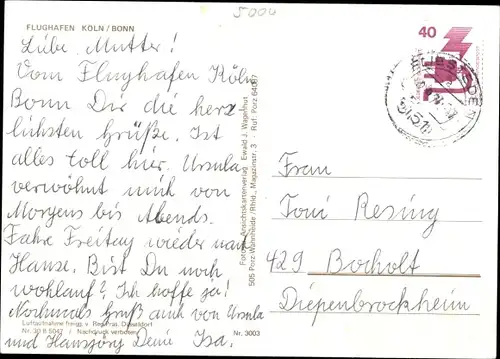 5000
FLUGHAFEN KÖLN/BONN
40
Liebe Mutter!
Vom Flughafen Köln
Bonn Dir die herz
lichsten Grüße. Ist
alles toll hier. Ursula
verwöhnt mich von
Morgens bis Abends.
Fahre Freitag wieder nach
Hause. Bist Du noch
wohlauf? Ich hoffe ja!
Nochmals Gruß auch von Ursula
und Hansjörg Deine Isa.
Foto u. Ansichtskartenverlag Ewald J. Wagenhut
505 Porz-Wahnheide/Rhld., Magazinstr. 3 - Ruf: Porz 64087
Frau
Toni Resing
429 Bocholt
Diepenbrockheim
Luftaufnahme freigg. v. Reg. Präs. Düsseldorf
Nr. 30 B 5047 / Nachdruck verboten
Nr. 3003